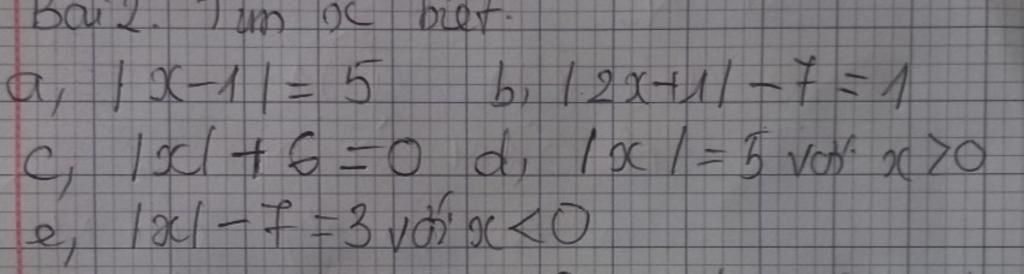 Bài 2. Tìm x biết.
a, |x-1| = 5 b, |2x+1| - 7 = 1
c, |x| + 6 = 0 d, |x| = 5 với x > 0
e, |x| - 7 = 3 với x < 0